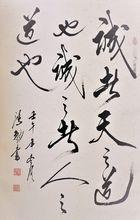 誠者天之道
也誠之者人之
道也
壬午年
月
書